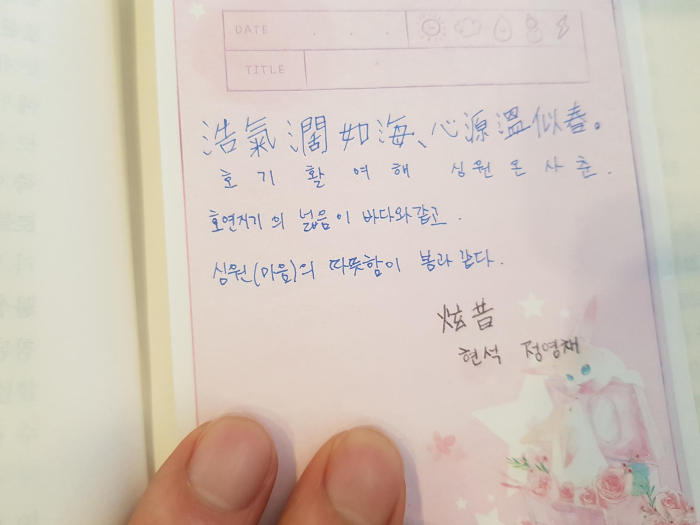 DATE . . .
TITLE
浩氣濶如海、心源溫似春。
호 기 활 여 해 심 원 온 사 춘.
호연지기의 넓음이 바다와같고.
심원(마음)의 따뜻함이 봄과 같다.
炫昔
현석 정영채